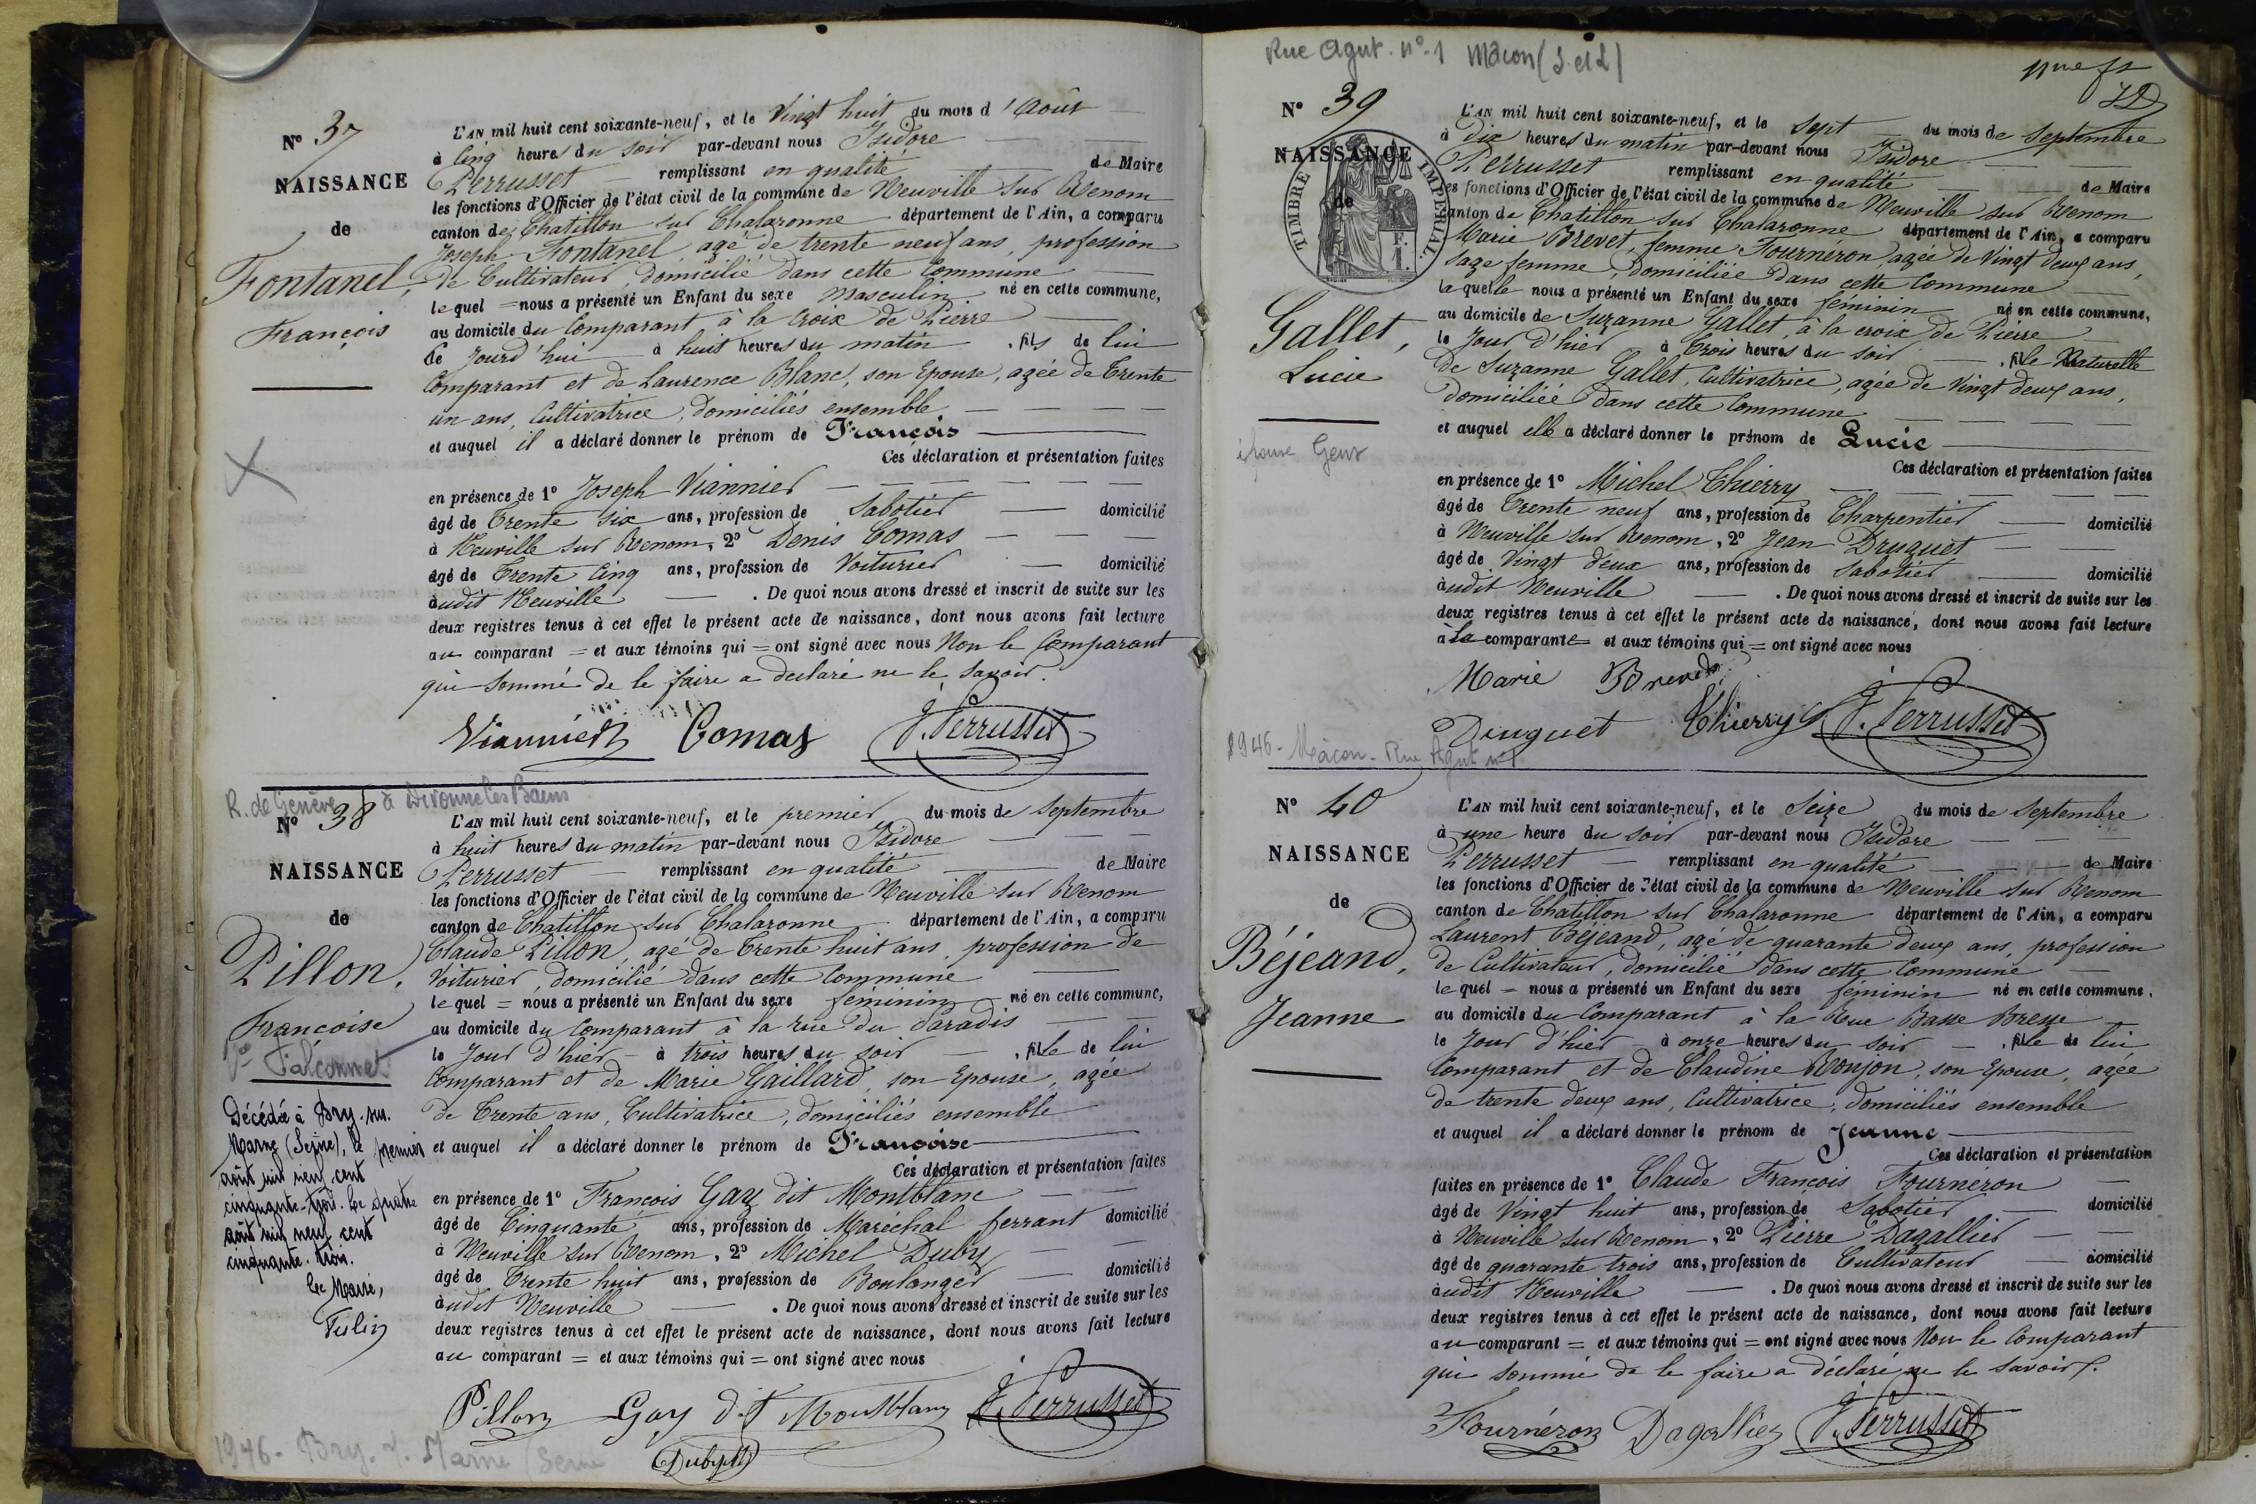 Nº 37
NAISSANCE
de
Fontanel,
François
L'AN mil huit cent soixante-neuf, et le Vingt huit du mois d'Août
à Cinq heures du soir par-devant nous Isidore
Perrusset remplissant en qualité de Maire
les fonctions d'Officier de l'état civil de la commune de Neuville sur Renom
canton de Chatillon sur Chalaronne département de l'Ain, a comparu
Joseph Fontanel, agé de trente neuf ans, profession
de Cultivateur, domicilié dans cette Commune
lequel = nous a présenté un Enfant du sexe masculin. né en cette commune,
au domicile du Comparant à la Croix de Pierre
Ce Jourd'hui à huit heures du matin, fils de lui
Comparant et de Laurence Blanc, son Epouse, agée de Trente
un ans, Cultivatrice, domiciliés ensemble.
et auquel il a déclaré donner le prénom de François
Ces déclaration et présentation faites
en présence de 1º Joseph Viannier
âgé de Trente six ans, profession de Sabotier domicilié
à Neuville sur Renom, 2º Denis Comas
âgé de Trente Cinq ans, profession de Voiturier domicilié
audit Neuville . De quoi nous avons dressé et inscrit de suite sur les
deux registres tenus à cet effet le présent acte de naissance, dont nous avons fait lecture
au comparant = et aux témoins qui = ont signé avec nous Non le Comparant
qui sommé de le faire a déclaré ne le savoir.
Viannier Comas J. Perrusset
R. de Genève à Divonne les Bains
Nº 38
NAISSANCE
de
Pillon,
Françoise
Vº Falconnet
Décédée à Bry-sur-
Marne (Seine), le premier
août mil neuf cent
cinquante-trois. Le quatre
août mil neuf cent
cinquante-trois.
Le Maire,
L'AN mil huit cent soixante-neuf, et le premier du mois de Septembre
à huit heures du matin par-devant nous Isidore
Perrusset remplissant en qualité de Maire
les fonctions d'Officier de l'état civil de la commune de Neuville sur Renom
canton de Chatillon sur Chalaronne département de l'Ain, a comparu
Claude Pillon, agé de Trente huit ans, profession de
Voiturier, domicilié dans cette Commune
lequel = nous a présenté un Enfant du sexe féminin né en cette commune,
au domicile du Comparant à la rue du Paradis
le Jour d'hier à trois heures du soir, fille de lui
Comparant et de Marie Gaillard, son Epouse, agée
de Trente ans, Cultivatrice, domiciliés ensemble
et auquel il a déclaré donner le prénom de Françoise
Ces déclaration et présentation faites
en présence de 1º François Gay dit Montblanc
âgé de Cinquante ans, profession de Maréchal ferrant domicilié
à Neuville sur Renom, 2º Michel Duby
âgé de Trente huit ans, profession de Boulanger domicilié
audit Neuville . De quoi nous avons dressé et inscrit de suite sur les
deux registres tenus à cet effet le présent acte de naissance, dont nous avons fait lecture
au comparant = et aux témoins qui = ont signé avec nous
Pillon Gay dit Montblanc J. Perrusset
1946 - Bry. s. Marne (Seine
Rue Agut. nº 1 Mâcon (S. et L)
Nº 39
NAISSANCE
de
TIMBRE IMPERIAL
Gallet,
Lucie
épouse
L'AN mil huit cent soixante-neuf, et le Sept du mois de Septembre
à dix heures du matin par-devant nous Isidore
Perrusset remplissant en qualité de Maire
les fonctions d'Officier de l'état civil de la commune de Neuville sur Renom
canton de Chatillon sur Chalaronne département de l'Ain, a comparu
Marie Brevet, femme Fournéron agée de Vingt deux ans,
sage femme, domiciliée dans cette Commune
laquelle nous a présenté un Enfant du sexe féminin né en cette commune,
au domicile de Suzanne Gallet à la croix de Pierre
le Jour d'hier à Trois heures du soir, fille Naturelle
de Suzanne Gallet, Cultivatrice, agée de Vingt deux ans,
domiciliée dans cette Commune
et auquel elle a déclaré donner le prénom de Lucie
Ces déclaration et présentation faites
en présence de 1º Michel Thierry
âgé de Trente neuf ans, profession de Charpentier domicilié
à Neuville sur Renom, 2º Jean Druguet
âgé de Vingt deux ans, profession de Sabotier domicilié
audit Neuville . De quoi nous avons dressé et inscrit de suite sur les
deux registres tenus à cet effet le présent acte de naissance, dont nous avons fait lecture
à la comparante et aux témoins qui = ont signé avec nous
Marie Brevet
Druguet Thierry J. Perrusset
1946 - Mâcon - Rue Agut nº 1
Nº 40
NAISSANCE
de
Béjeand,
Jeanne
L'AN mil huit cent soixante-neuf, et le Seize du mois de Septembre
à une heure du soir par-devant nous Isidore
Perrusset remplissant en qualité de Maire
les fonctions d'Officier de l'état civil de la commune de Neuville sur Renom
canton de Chatillon sur Chalaronne département de l'Ain, a comparu
Laurent Béjeand, agé de quarante deux ans, profession
de Cultivateur, domicilié dans cette Commune
lequel = nous a présenté un Enfant du sexe féminin né en cette commune,
au domicile du Comparant à la Rue Basse Bresse
le Jour d'hier à onze heures du soir, fille de lui
Comparant et de Claudine Ronjon, son Epouse, agée
de trente deux ans, Cultivatrice, domiciliés ensemble
et auquel il a déclaré donner le prénom de Jeanne
Ces déclaration et présentation
faites en présence de 1º Claude François Fournéron
âgé de Vingt huit ans, profession de Sabotier domicilié
à Neuville sur Renom, 2º Pierre Dagallier
âgé de quarante trois ans, profession de Cultivateur domicilié
audit Neuville . De quoi nous avons dressé et inscrit de suite sur les
deux registres tenus à cet effet le présent acte de naissance, dont nous avons fait lecture
au comparant = et aux témoins qui = ont signé avec nous Non le Comparant
qui sommé de le faire a déclaré ne le savoir.
Fournéron Dagallier J. Perrusset